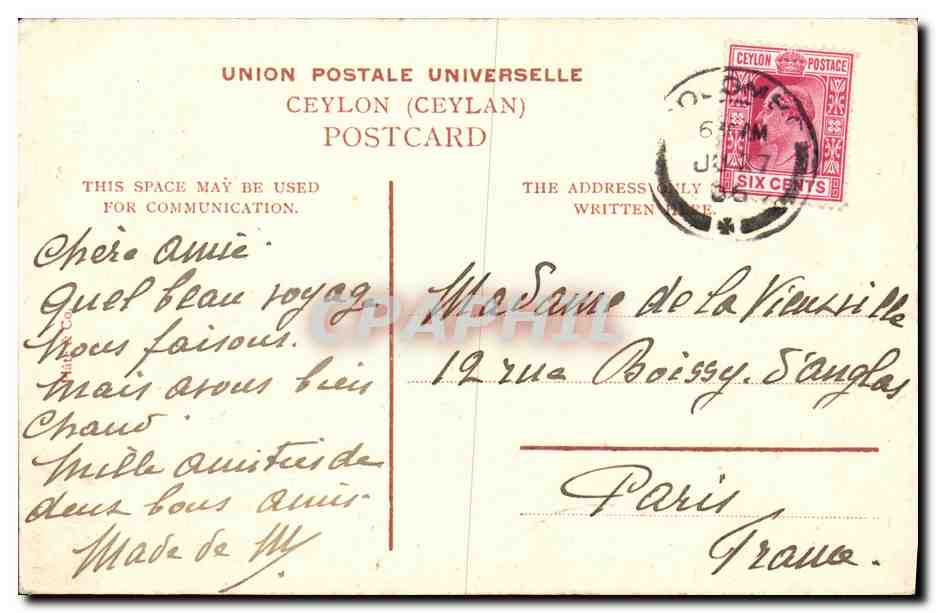 UNION POSTALE UNIVERSELLE
CEYLON (CEYLAN)
POSTCARD
CEYLON POSTAGE
SIX CENTS
THIS SPACE MAY BE USED
FOR COMMUNICATION.
THE ADDRESS ONLY
WRITTEN HERE.
Chère amie
Quel beau voyage
nous faisons.
mais avons bien
chaud.
Mille amitiés de
deux bons amis
Made de M
Madame de la Vieuville
12 rue Boissy. d'anglas
Paris
France.
CPAPHIL
& Co.